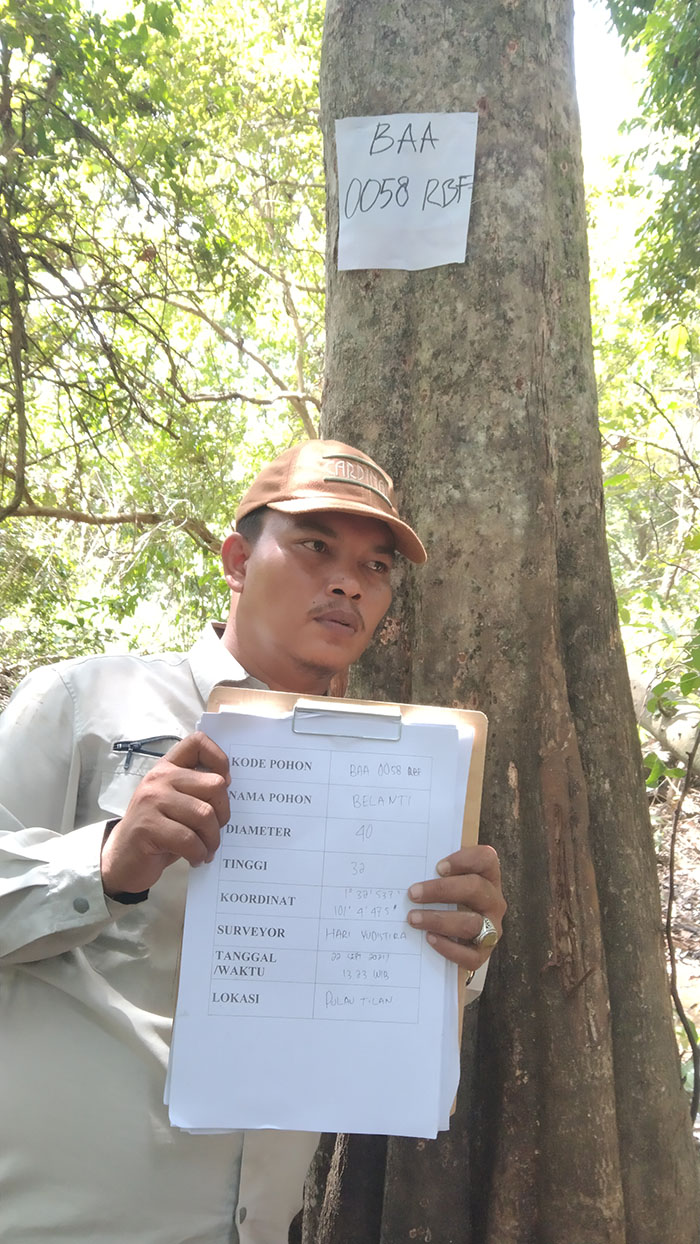 BAA
0058 RBF
CARDINAL
KODE POHON BAA 0058 RBF
NAMA POHON BELANTI
DIAMETER 40
TINGGI 32
KOORDINAT 1° 32' 537"
101° 4' 475"
SURVEYOR HARI YUDISTIRA
TANGGAL
/WAKTU 13.73 WIB
LOKASI PULAU TILAN